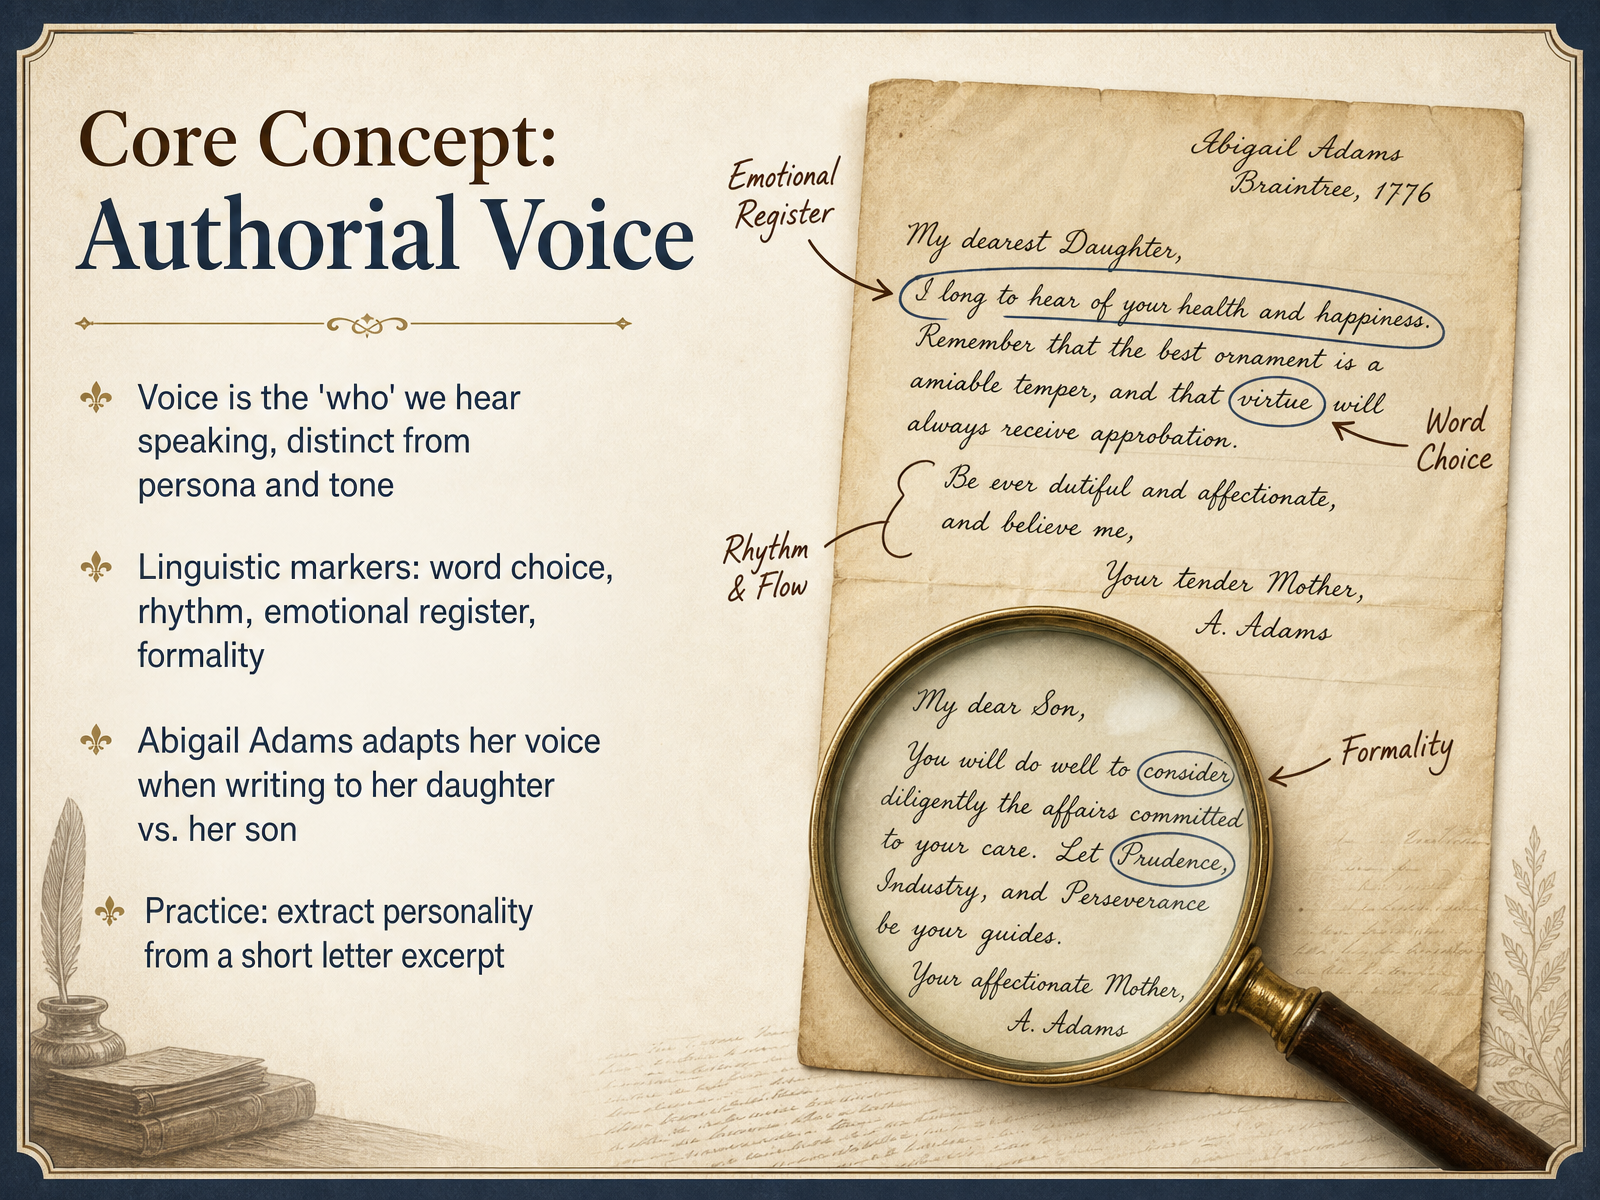 Core Concept:
Authorial Voice
Voice is the 'who' we hear
speaking, distinct from
persona and tone
Linguistic markers: word choice,
rhythm, emotional register,
formality
Abigail Adams adapts her voice
when writing to her daughter
vs. her son
Practice: extract personality
from a short letter excerpt
Emotional
Register
Abigail Adams
Braintree, 1776
My dearest Daughter,
I long to hear of your health and happiness.
Remember that the best ornament is a
amiable temper, and that virtue will
always receive approbation.
Word
Choice
Be ever dutiful and affectionate,
and believe me,
Rhythm
& Flow
Your tender Mother,
A. Adams
My dear Son,
You will do well to consider
diligently the affairs committed
to your care. Let Prudence,
Industry, and Perseverance
be your guides.
Your affectionate Mother,
A. Adams
Formality